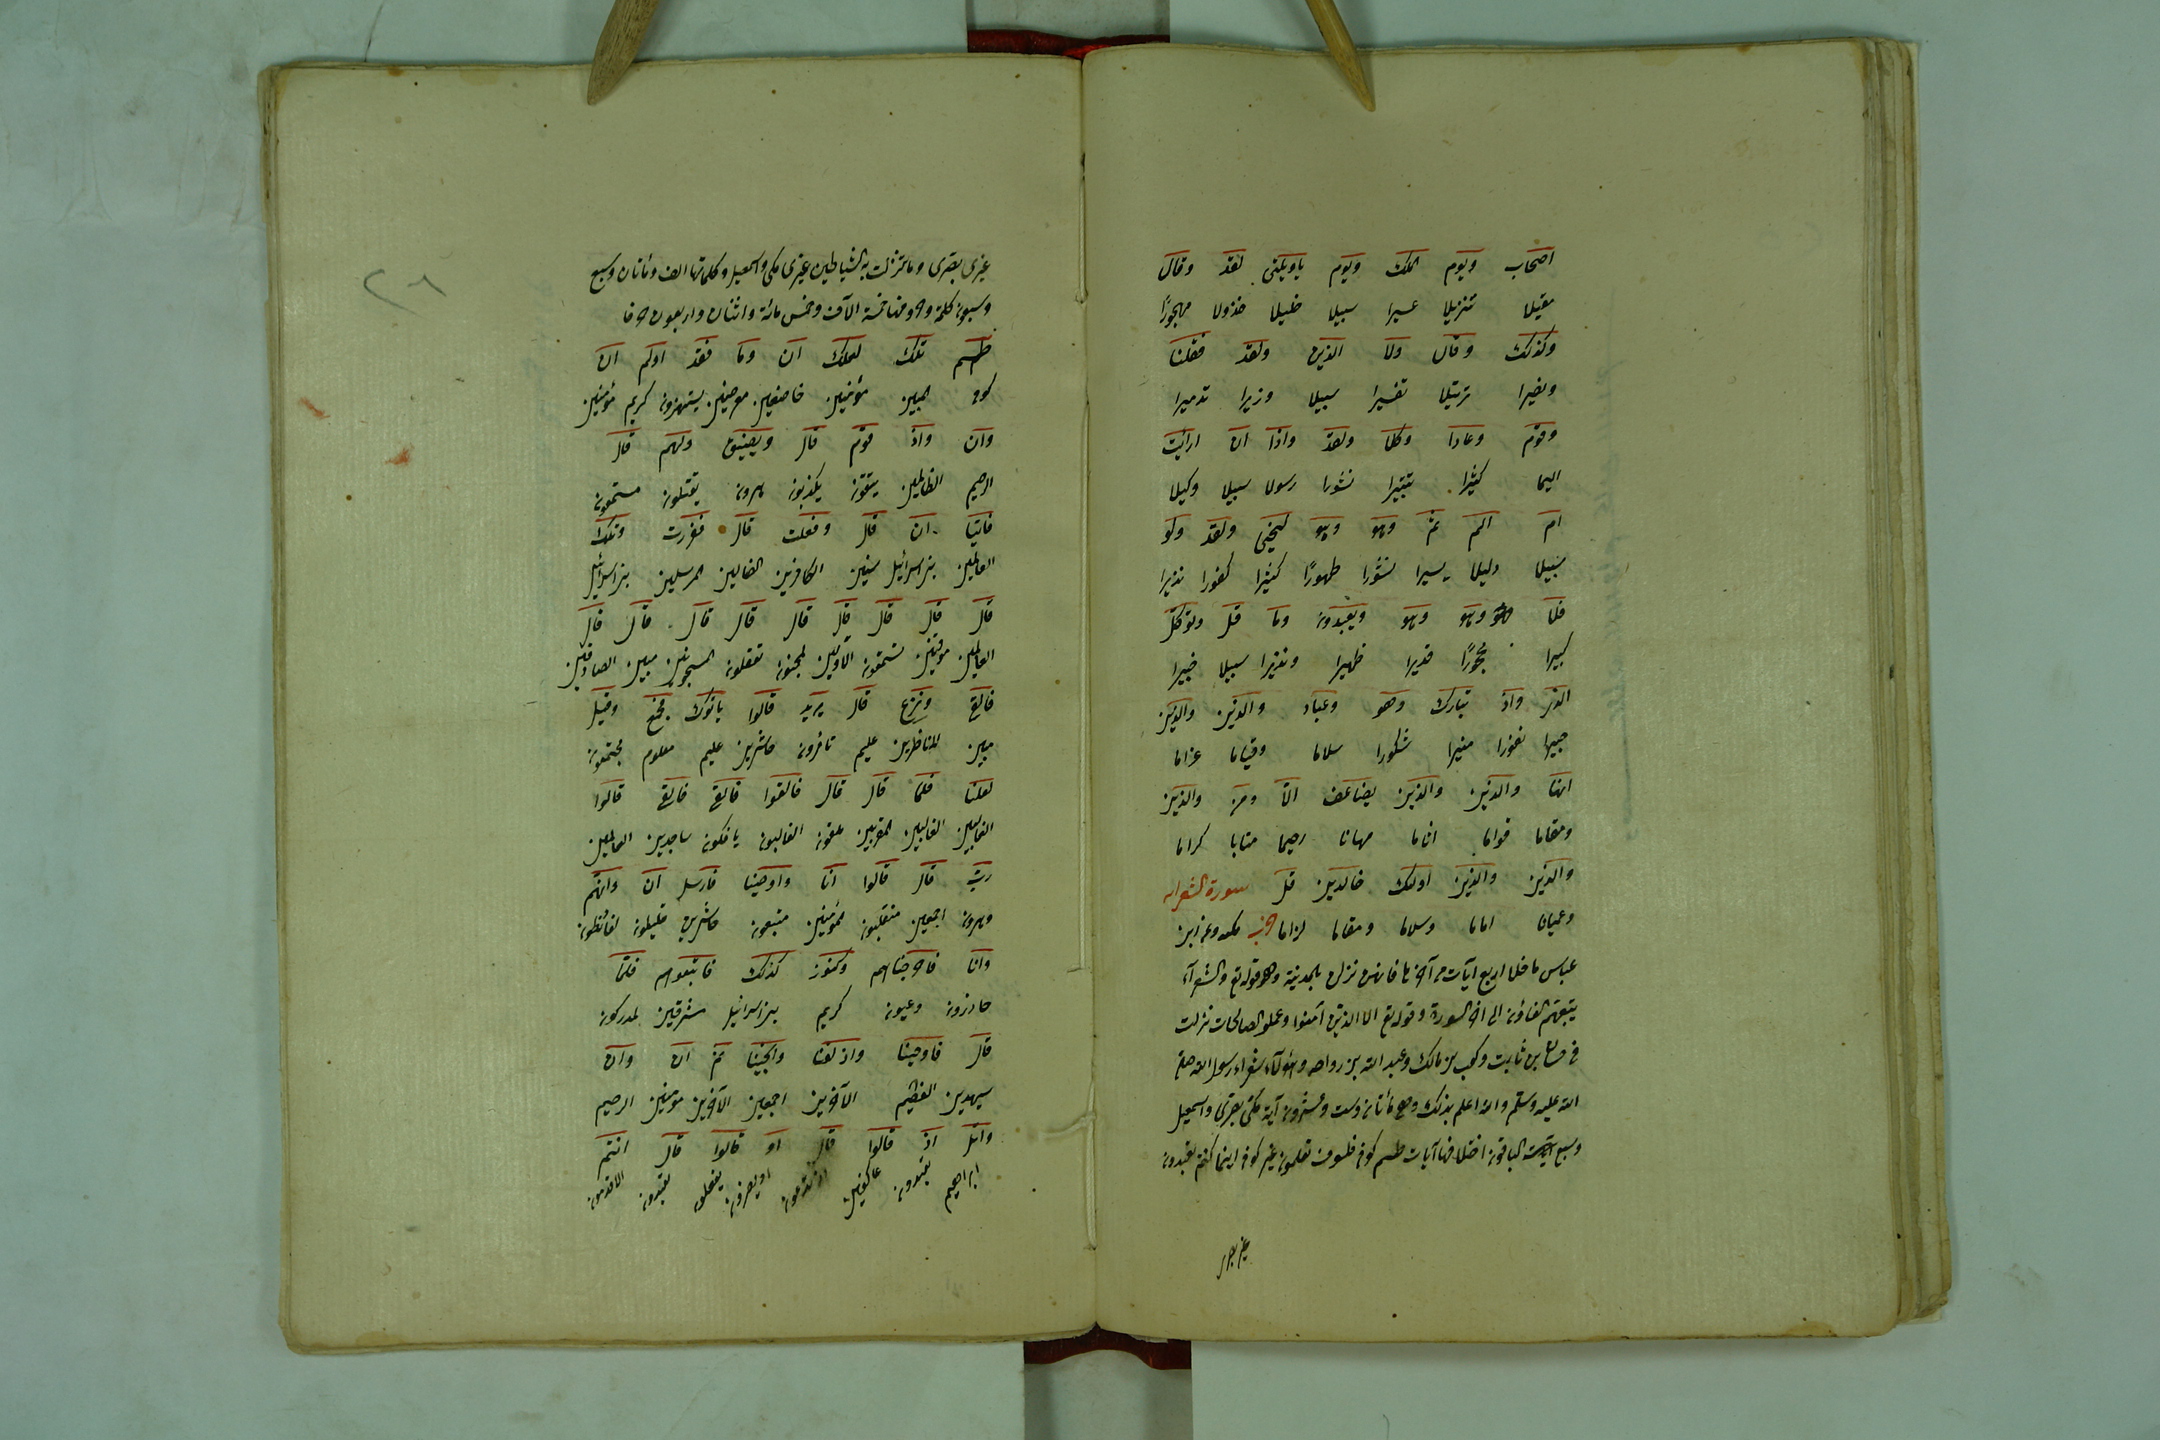 اصحاب ويوم الملك ويوم ياويلتى لقد وقال
مقيلا تنزيلا عسيرا سبيلا خليلا خذولا مهجورًا
وكذلك وقال ولا الذين ولقد فقلنا
ونصيرا ترتيلا تفسيرا سبيلا وزيرا تدميرا
وقوم وعادا وكلا ولقد واذا ان ارأيت
اليما كثيرا تتبيرا نشورا رسولا سبيلا وكيلا
ام الم ثم وهو وهو لنحيى ولقد ولو
سبيلا دليلا يسيرا نشورا طهورًا كثيرا كفورا نذيرا
فلا وهو وهو ويعبدون وما قل وتوكل
كبيرا محجورًا قديرا ظهيرا ونذيرا سبيلا خبيرا
الذى واذ تبارك وهو وعباد والذين والذين
خبيرا نفورا منيرا شكورا سلاما وقياما غراما
انها والذين والذين يضاعف الا ومن والذين
ومقاما قواما اثاما مهانا رحيما متابا كراما
والذين والذين اولئك خالدين قل سورة الشعراء
وعميانا اماما وسلاما ومقاما لزاما مكيه وعن ابن
عباس ما خلا اربع ايات من آخرها فانهن نزلن بالمدينة وهو قوله تع والشعرآء
يتبعهم الغاون الى اخر السورة وقوله تع الا الذين آمنوا وعملوا الصالحات نزلت
فى حسان بن ثابت وكعب بن مالك وعبد الله بن رواحه وهؤلآء شعراء رسول الله صلى
الله عليه وسلم والله اعلم بذلك وهى مائتان وست وعشرون آية مكى بصرى واسمعيل
وسبع الباقون اختلافها آيات طسم كوفى فلسوف تعلمون غير كوفى اينما كنتم تعبدون
غير بصرى
٢٦
غير بصرى وما تنزلت به الشياطين غير مكى واسمعيل وكلماتها الف ومائتان وسبع
وسبعون كلمة وحروفها خمسة الآف وخمس مائة واثنان واربعون حرفا
طسم تلك لعلك ان وما فقد اولم ان
كوفى المبين مؤمنين خاضعين معرضين يستهزون كريم مؤمنين
وان واذ قوم قال ويضيق ولهم قال
الرحيم الظالمين يتقون يكذبون هرون يقتلون مستمعون
فاتيا ان قال وفعلت قال ففررت وتلك
العالمين بنى اسرائيل سنين الكافرين الضالين المرسلين بنى اسرائيل
قال قال قال قال قال قال قال قال قال
العالمين موقنين تستمعون الاولين لمجنون تعقلون المسجونين مبين الصادقين
فالقى ونزع قال يريد قالوا ياتوك فجمع وقيل
مبين للناظرين عليم تامرون حاشرين عليم معلوم مجتمعون
لعلنا فلما قال قال فالقوا فالقى فالقى قالوا
الغالبين الغالبين المقربين ملقون الغالبون يافكون ساجدين العالمين
رب قال قالوا انا واوحينا فارسل ان وانهم
وهرون اجمعين منقلبون المؤمنين متبعون حاشرين قليلون لغائظون
وانا فاخرجناهم وكنوز كذلك فاتبعوهم فلما
حاذرون وعيون كريم بنى اسرائيل مشرقين لمدركون
قال فاوحينا وازلفنا وانجينا ثم ان وان
سيهدين العظيم الآخرين اجمعين الآخرين مؤمنين الرحيم
واتل اذ قالوا قال او قالوا قال انتم
ابراهيم تعبدون عاكفين اذ تدعون او يضرون يفعلون تعبدون الاقدمون